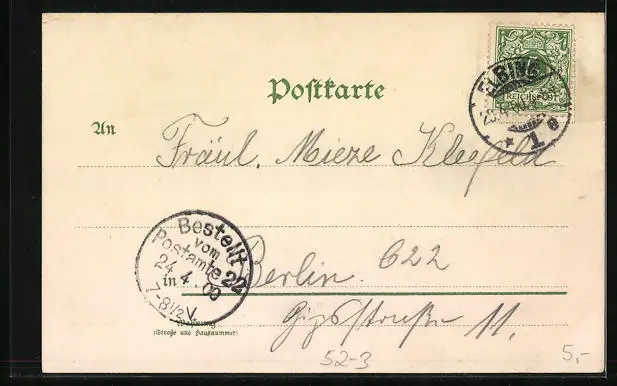 Postkarte
REICHSPOST
ELBING
1 e
An
Fräul. Mieze Kleefeld
Bestellt
vom
Postamte 22
24 4 00
7-8½ V.
in Berlin. C 22
Wohnung
(Straße und Hausnummer)
Gipsstraße 11.
52-3
5,-